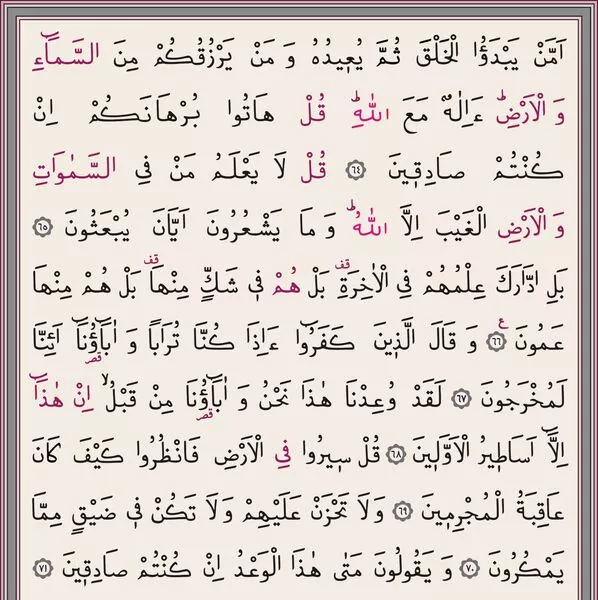 اَمَّنْ يَبْدَؤُا الْخَلْقَ ثُمَّ يُعٖيدُهُ وَ مَنْ يَرْزُقُكُمْ مِنَ السَّمَٓاءِ
وَ الْاَرْضِؕ ءَاِلٰهٌ مَعَ اللّٰهِؕ قُلْ هَاتُوا بُرْهَانَكُمْ اِنْ
كُنْتُمْ صَادِقٖينَ ﴿٦٤﴾ قُلْ لَا يَعْلَمُ مَنْ فِي السَّمٰوَاتِ
وَ الْاَرْضِ الْغَيْبَ اِلَّا اللّٰهُؕ وَ مَا يَشْعُرُونَ اَيَّانَ يُبْعَثُونَ ﴿٦٥﴾
بَلِ ادّٰارَكَ عِلْمُهُمْ فِي الْاٰخِرَةِ قف بَلْ هُمْ فٖي شَكٍّ مِنْهَا قف بَلْ هُمْ مِنْهَا
عَمُونَ ﴿٦٦﴾ ع وَ قَالَ الَّذٖينَ كَفَرُٓوا ءَاِذَا كُنَّا تُرَابًا وَ اٰبَٓاؤُنَٓا قصر اَئِنَّا
لَمُخْرَجُونَ ﴿٦٧﴾ لَقَدْ وُعِدْنَا هٰذَا نَحْنُ وَ اٰبَٓاؤُنَا قصر مِنْ قَبْلُۙ اِنْ هٰذَٓا
اِلَّٓا اَسَاطٖيرُ الْاَوَّلٖينَ ﴿٦٨﴾ قُلْ سٖيرُوا فِي الْاَرْضِ فَانْظُرُوا كَيْفَ كَانَ
عَاقِبَةُ الْمُجْرِمٖينَ ﴿٦٩﴾ وَلَا تَحْزَنْ عَلَيْهِمْ وَلَا تَكُنْ فٖي ضَيْقٍ مِمَّا
يَمْكُرُونَ ﴿٧٠﴾ وَ يَقُولُونَ مَتٰى هٰذَا الْوَعْدُ اِنْ كُنْتُمْ صَادِقٖينَ ﴿٧١﴾